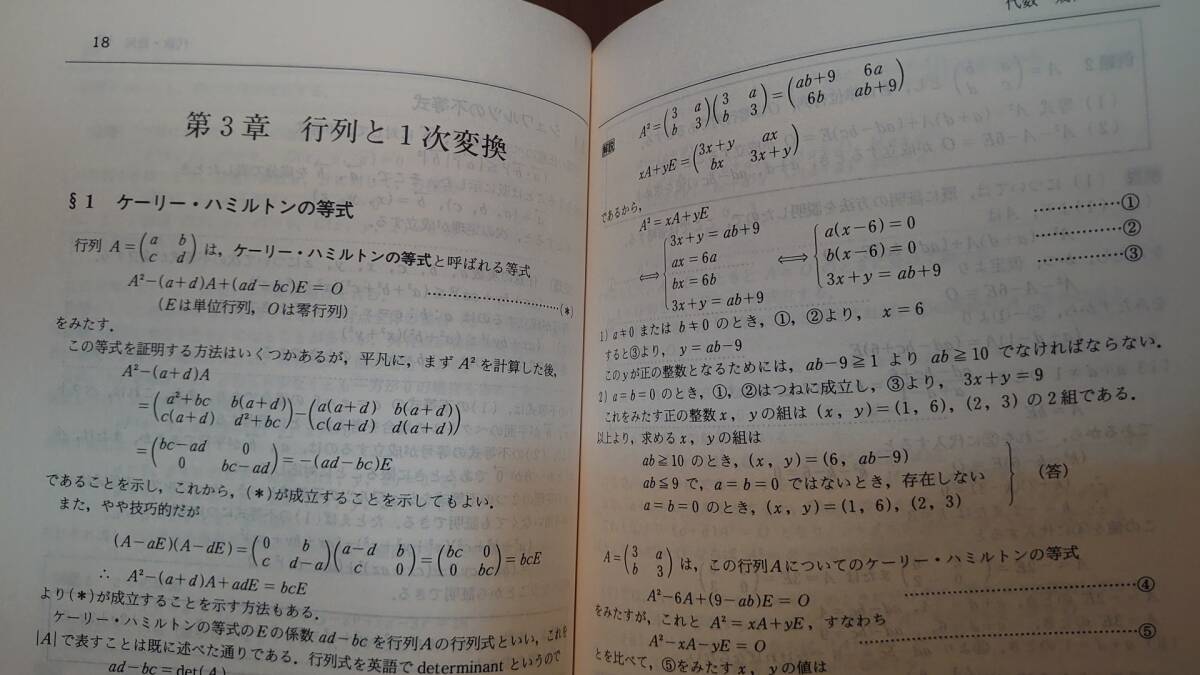 18
第3章 行列と1次変換
§1 ケーリー・ハミルトンの等式
行列 A=(a b c d) は，ケーリー・ハミルトンの等式と呼ばれる等式
A²−(a+d)A+(ad−bc)E=O ……………………(*)
(Eは単位行列，Oは零行列)
をみたす．
この等式を証明する方法はいくつかあるが，平凡に，まず A² を計算した後，
A²−(a+d)A
=(a²+bc b(a+d) c(a+d) d²+bc)−(a(a+d) b(a+d) c(a+d) d(a+d))
=(bc−ad 0 0 bc−ad)=−(ad−bc)E
であることを示し，これから，(*)が成立することを示してもよい．
また，やや技巧的だが
(A−aE)(A−dE)=(0 b c d−a)(a−d b c 0)=(bc 0 0 bc)=bcE
∴ A²−(a+d)A+adE=bcE
より(*)が成立することを示す方法もある．
ケーリー・ハミルトンの等式のEの係数 ad−bc を行列Aの行列式といい，これを
|A|で表すことは既に述べた通りである．行列式を英語で determinant というので
ad−bc=det(A)
代数
A²=(3 a b 3)(3 a b 3)=(ab+9 6a 6b ab+9)
解説
xA+yE=(3x+y ax bx 3x+y)
であるから，
A²=xA+yE
⟺{3x+y=ab+9 ax=6a bx=6b 3x+y=ab+9 ⟺{a(x−6)=0 ……………① b(x−6)=0 ……………② 3x+y=ab+9 ……………③
1) a≠0 または b≠0 のとき，①，②より， x=6
すると③より， y=ab−9
このyが正の整数となるためには，ab−9≧1 より ab≧10 でなければならない．
2) a=b=0 のとき，①，②はつねに成立し，③より， 3x+y=9
これをみたす正の整数 x，y の組は (x，y)=(1，6)，(2，3) の2組である．
以上より，求める x，y の組は
ab≧10 のとき，(x，y)=(6，ab−9)
ab≦9 で，a=b=0 ではないとき，存在しない
a=b=0 のとき，(x，y)=(1，6)，(2，3)
(答)
A=(3 a b 3) は，この行列Aについてのケーリー・ハミルトンの等式
A²−6A+(9−ab)E=O ……………………④
をみたすが，これと A²=xA+yE，すなわち
A²−xA−yE=O ……………………⑤
とを比べて，⑤をみたす x，y の値は